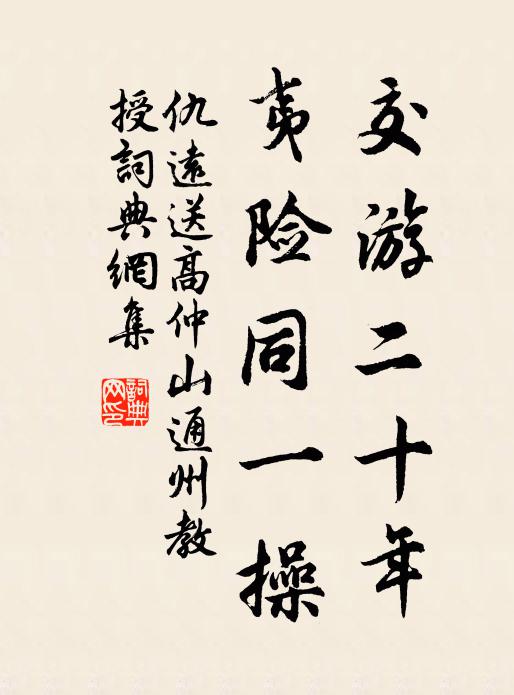 交游二十年
夷险同一操
仇遠送高仲山通州教
授詞典網集
詞典网印